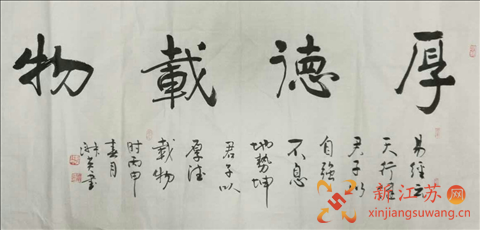 厚德載物
易經云
天行健
君子以
自強
不息
地勢坤
君子以
厚德
載物
时丙申
春月
新江苏网
xinjiangsuwang.cn